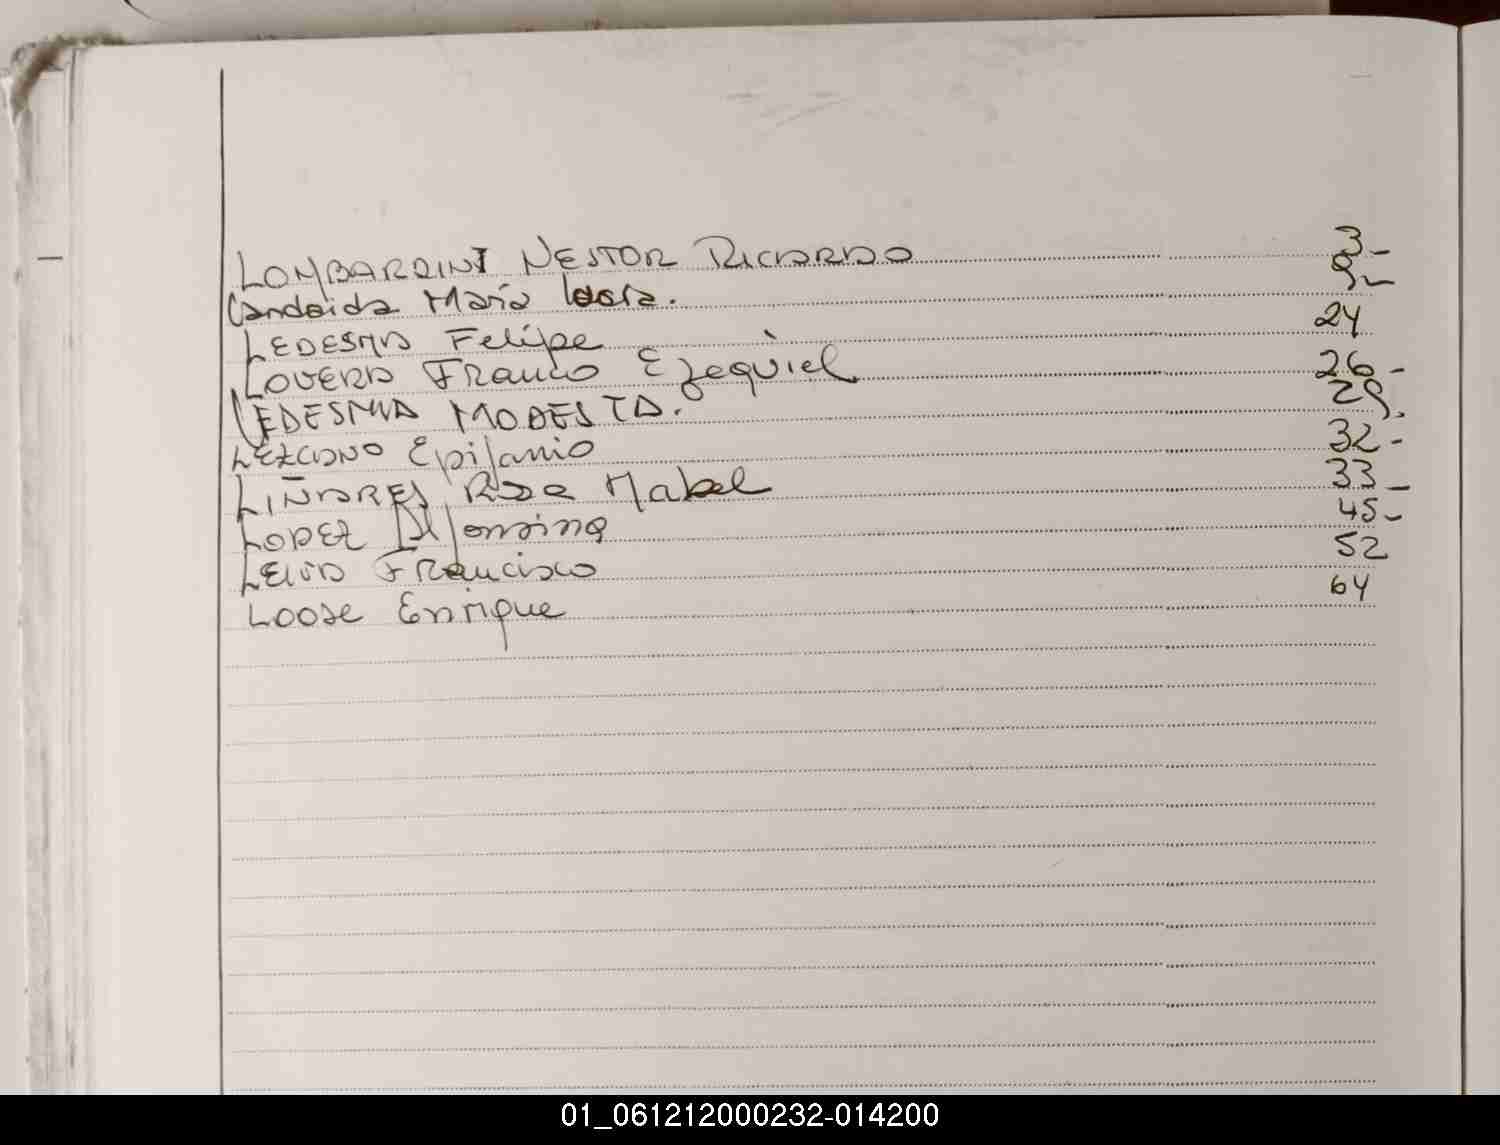 LOMBARDINI NESTOR RICARDO 3-
Candida María 9-
LEDESMA Felipe 24
LOVERA Franco Ezequiel 26-
LEDESMA MODESTA. 29.
LEZCANO Epifanio 32-
LIÑARES Rosa Mabel 33-
LOPEZ Alfonsina 45-
LEIVA Francisco 52
LOOSE Enrique 64
01_061212000232-014200